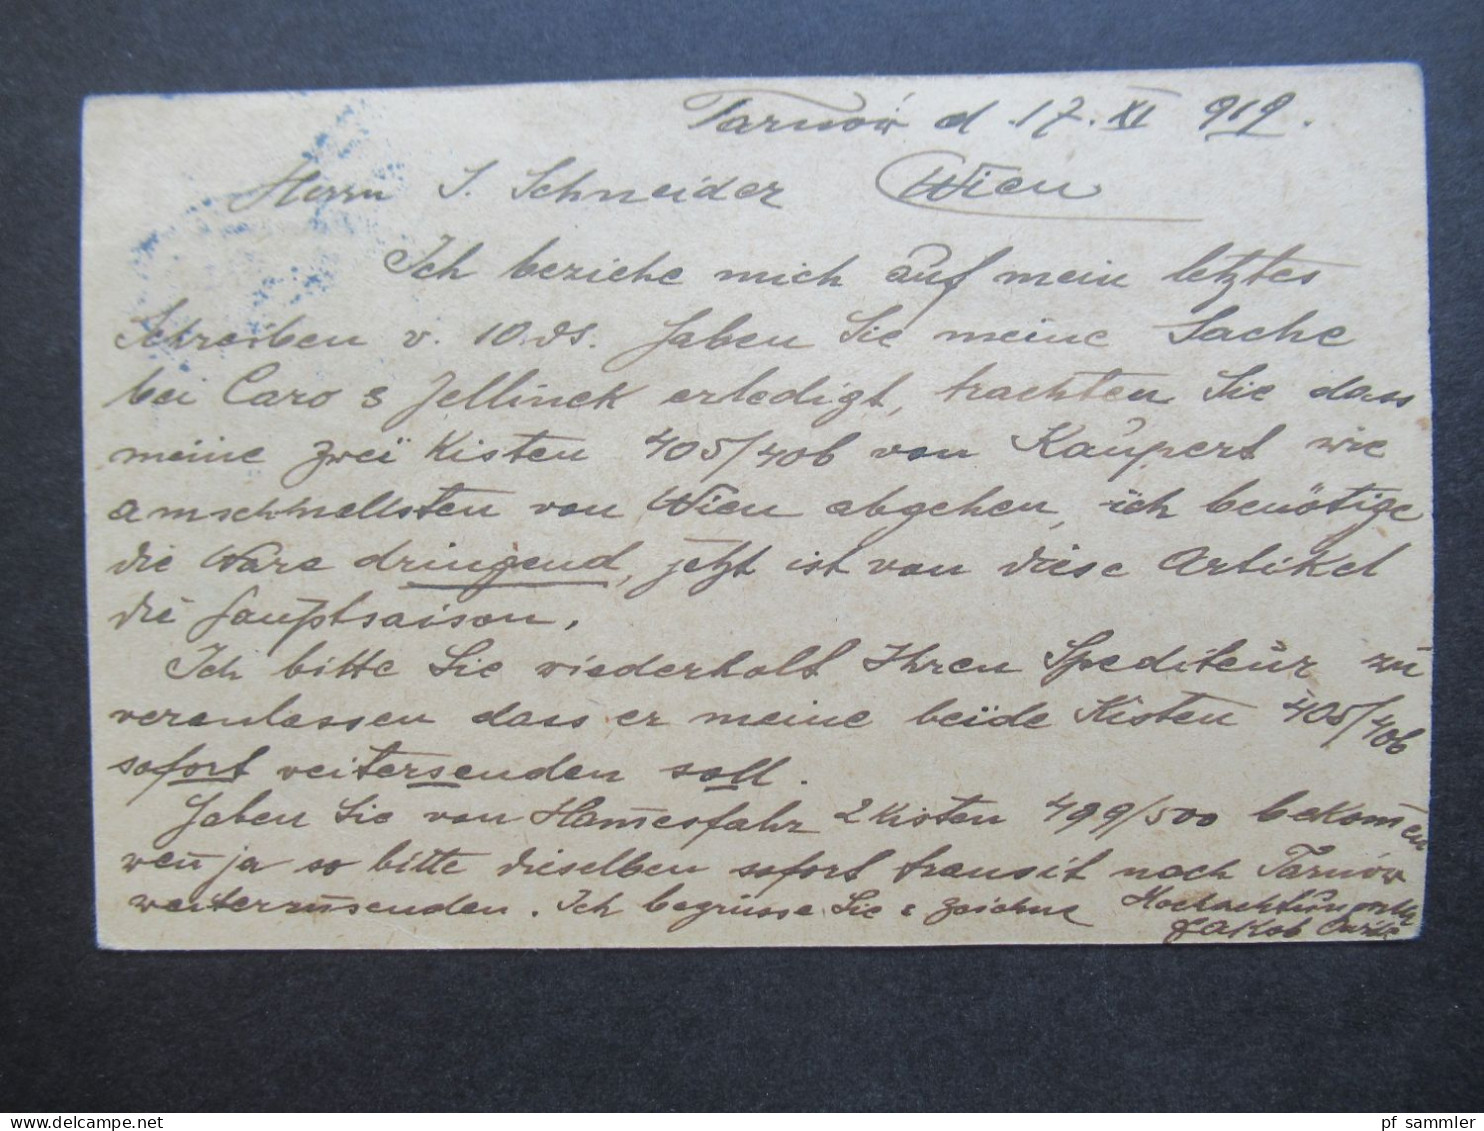 Tarnów d. 17. XI 919.
Herrn S. Schneider Wien
Ich beziehe mich auf mein letztes
Schreiben v. 10. ds. Haben Sie meine Sache
bei Caro & Jellinek erledigt, trachten Sie dass
meine zwei Kisten 405/406 von Kaupert wie
amschnellsten von Wien abgehen, ich benötige
die Ware dringend, jetzt ist von diese Artikel
die Hauptsaison.
Ich bitte Sie wiederholt Ihren Spediteur zu
veranlassen dass er meine beide Kisten 405/406
sofort weitersenden soll.
Haben Sie von 2 Kisten 499/500 bekom̅en
wen̅ ja so bitte dieselben sofort transit nach Tarnów
weiterzusenden. Ich begrüsse Sie & zeichne Hochachtungsvoll
Jakob
pf sammler